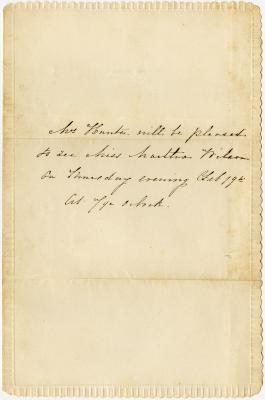 Mrs Hunter will be pleased
to see Miss Martha Wilson
on Thursday evening Feb 19th
At 7½ oclock.